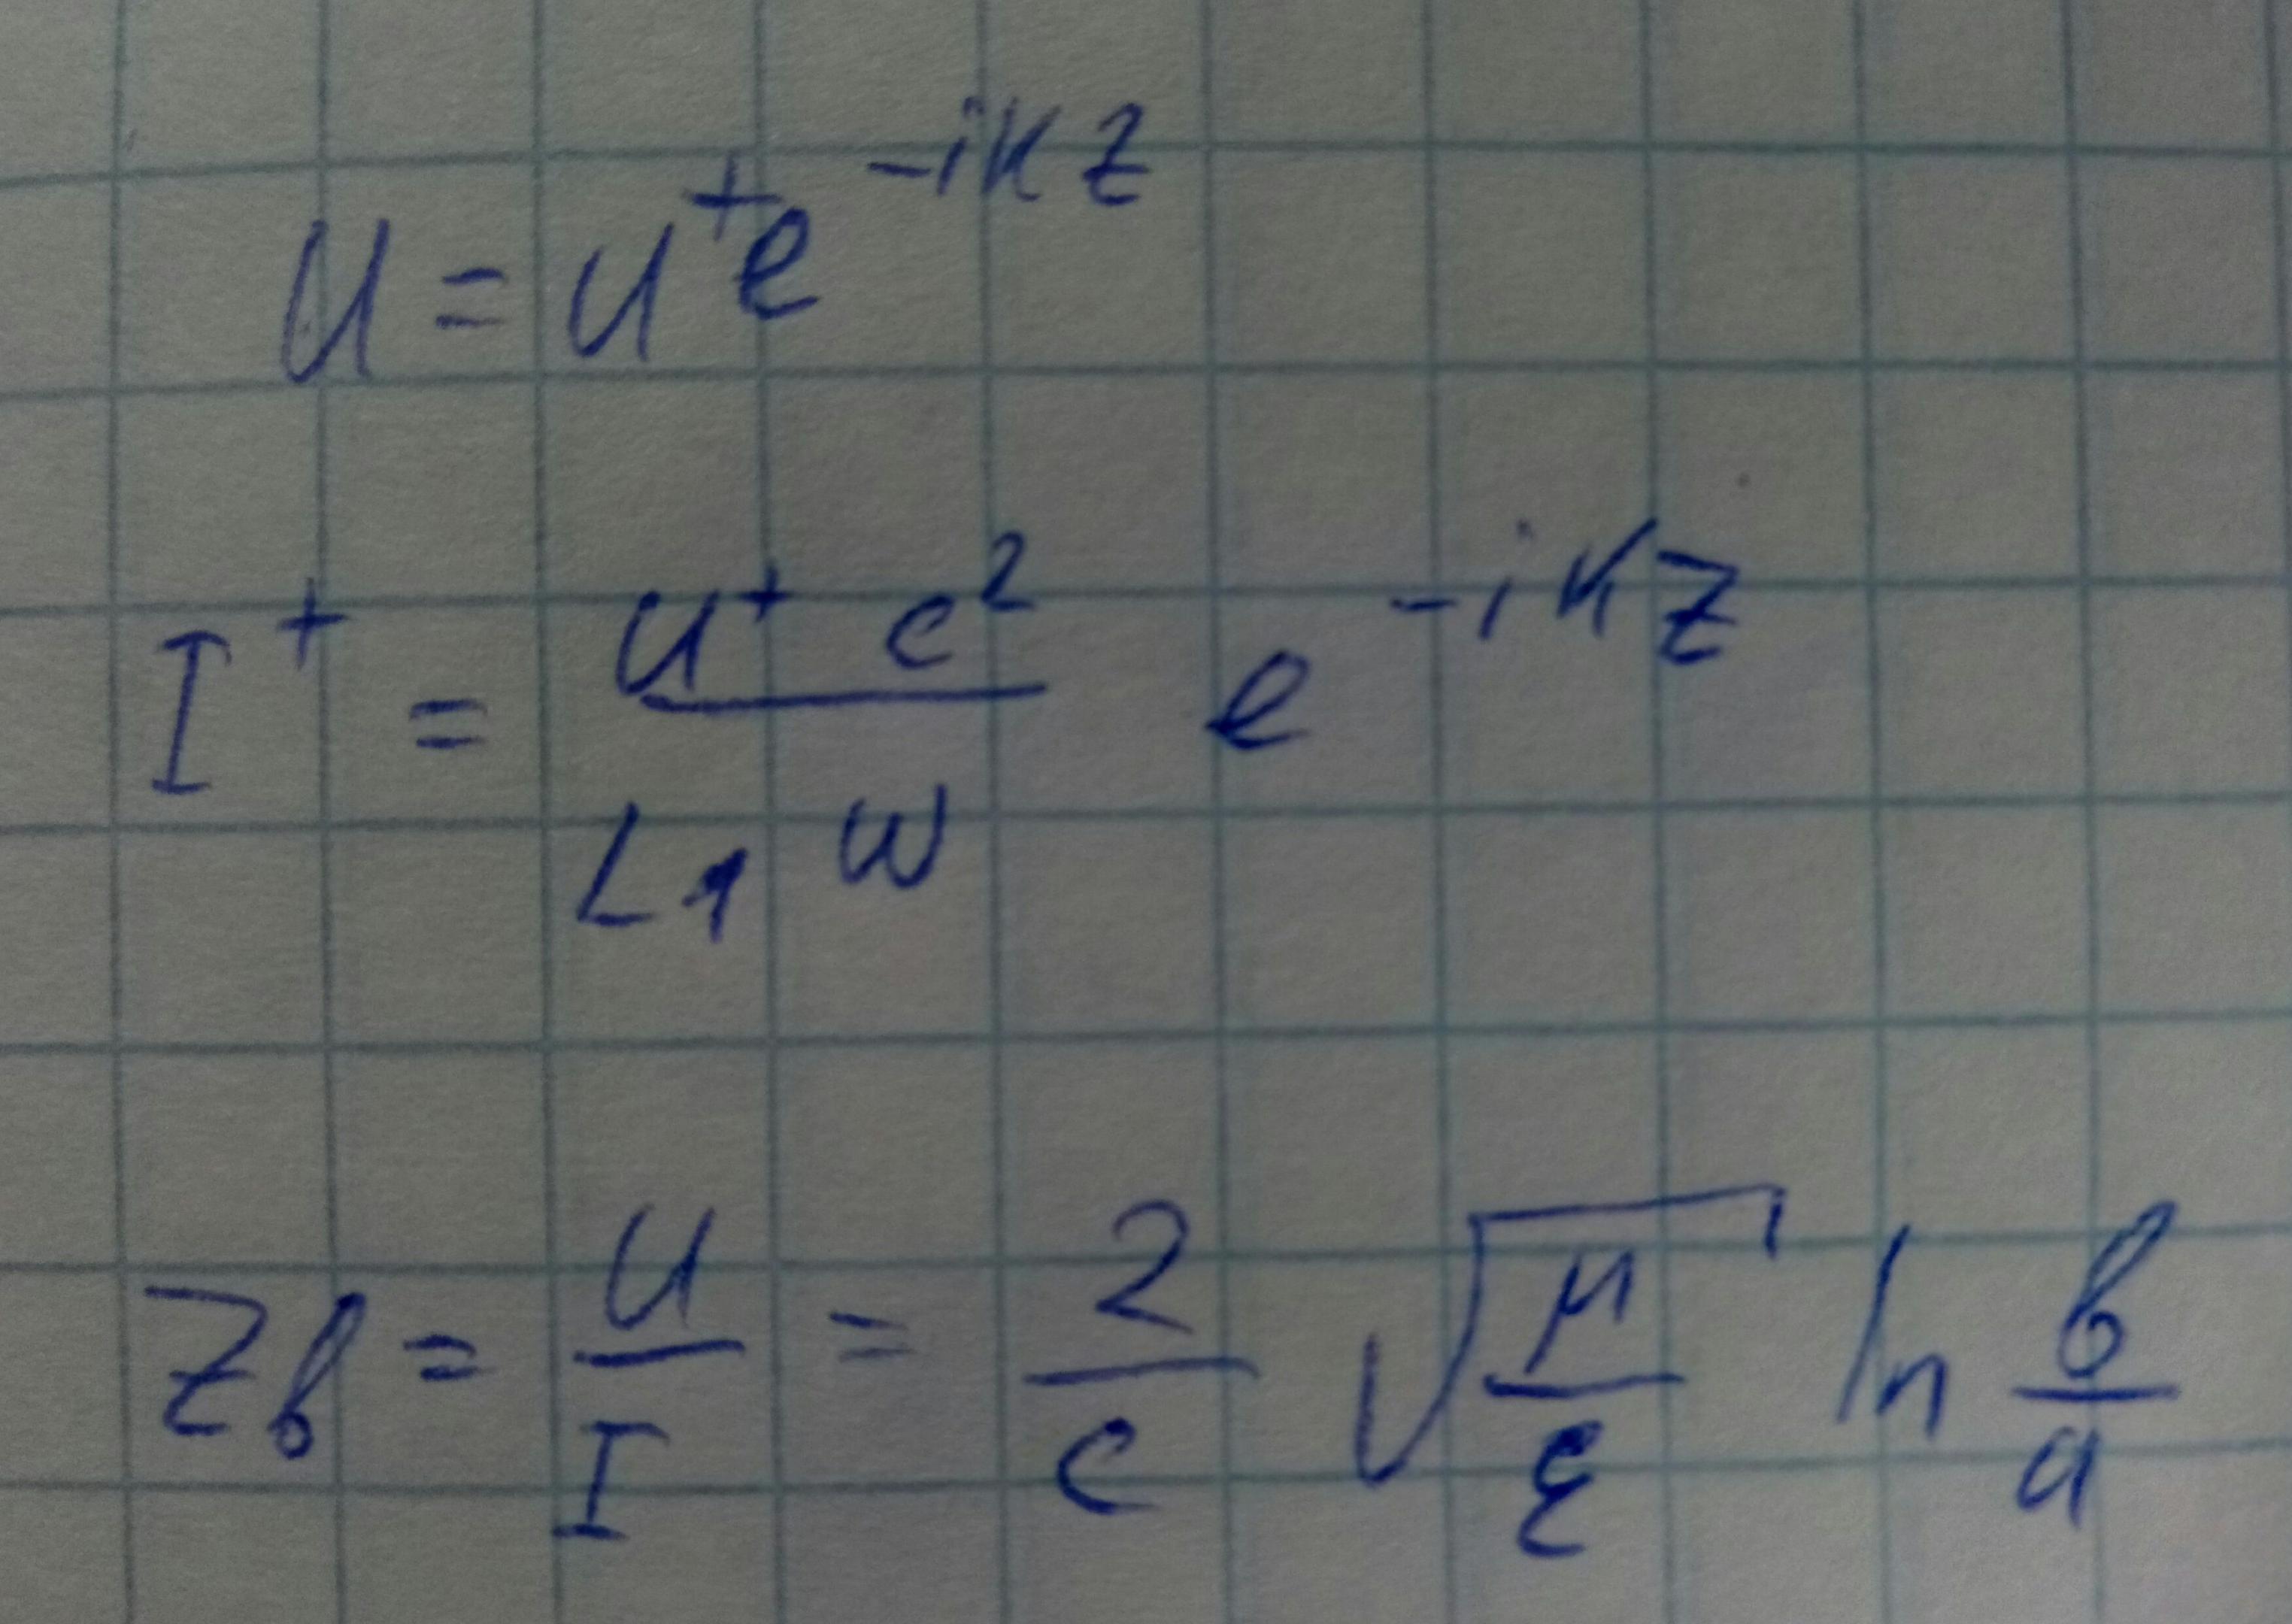 U = U⁺e^{-ikz}
I⁺ = \frac{U⁺ c²}{L₁ω} e^{-ikz}
Zв = \frac{U}{I} = \frac{2}{c} \sqrt{\frac{μ}{ε}} ln \frac{в}{a}